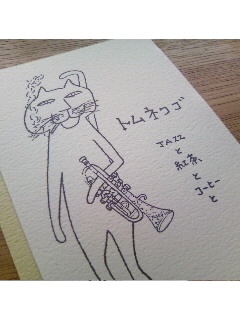 トムネコゴ
JAZZ
と
紅茶
と
コーヒー
と